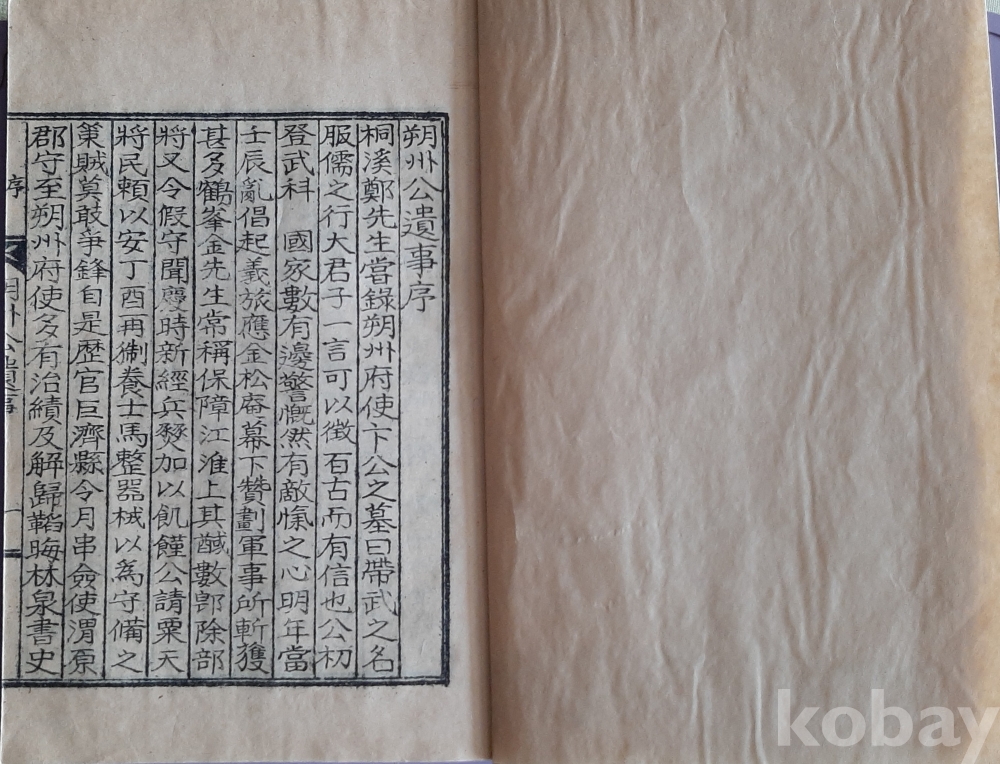 朔州公遺事序
桐溪鄭先生嘗錄朔州府使卞公之墓曰帶武之名
服儒之行大君子一言可以徵百古而有信也公初
登武科 國家數有邊警慨然有敵愾之心明年當
壬辰亂倡起義旅應金松庵幕下贊劃軍事所斬獲
甚多鶴峯金先生常稱保障江淮上其馘數卽除部
將又令假守聞慶時新經兵燹加以飢饉公請粟天
將民賴以安丁酉再制養士馬整器械以爲守備之
策賊莫敢爭鋒自是歷官巨濟縣令月串僉使渭原
郡守至朔州府使多有治績及解歸韜晦林泉書史
序 朔州公遺事 一
kobay